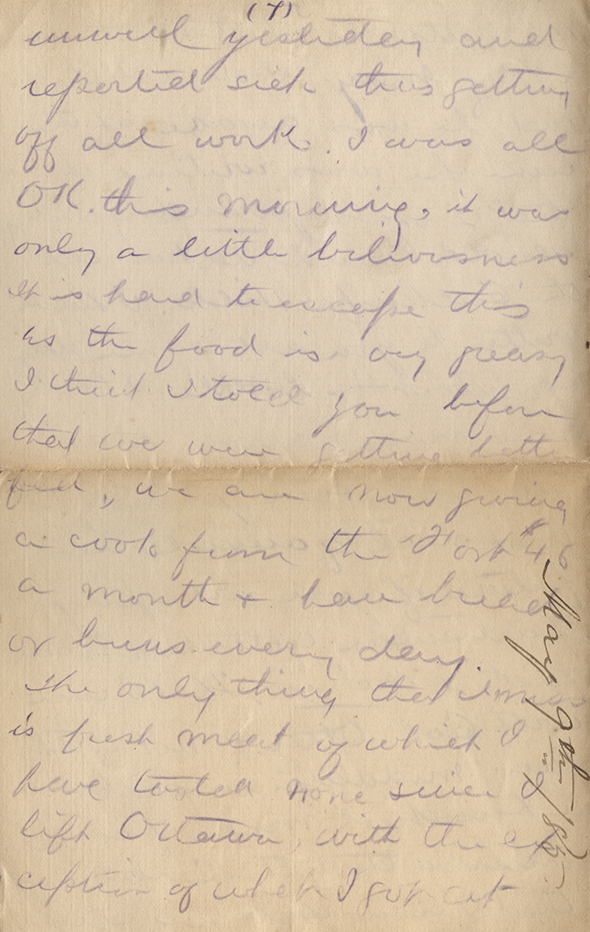 (7)
unwell yesterday and
reported sick thus getting
off all work. I was all
OK. this morning, it was
only a little biliousness
it is hard to escape this
as the food is very greasy
I think I told you before
that we were getting better
fed, we are now giving
a cook from the "Fort" $46
a month & have bread
or buns every day.
The only thing that I miss
is fresh meat of which I
have tasted none since I
left Ottawa, with the ex
ception of what I got at
May 9th /85